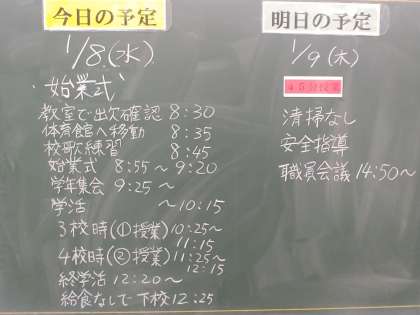 今日の予定
1/8(水)
始業式
教室で出欠確認 8:30
体育館へ移動 8:35
校歌練習 8:45
始業式 8:55〜9:20
学年集会 9:25〜
学活 〜10:15
3校時(①授業)10:25〜
11:15
4校時(②授業)11:25〜
12:15
終学活 12:20〜
給食なしで下校 12:25
明日の予定
1/9(木)
45分授業
清掃なし
安全指導
職員会議 14:50〜